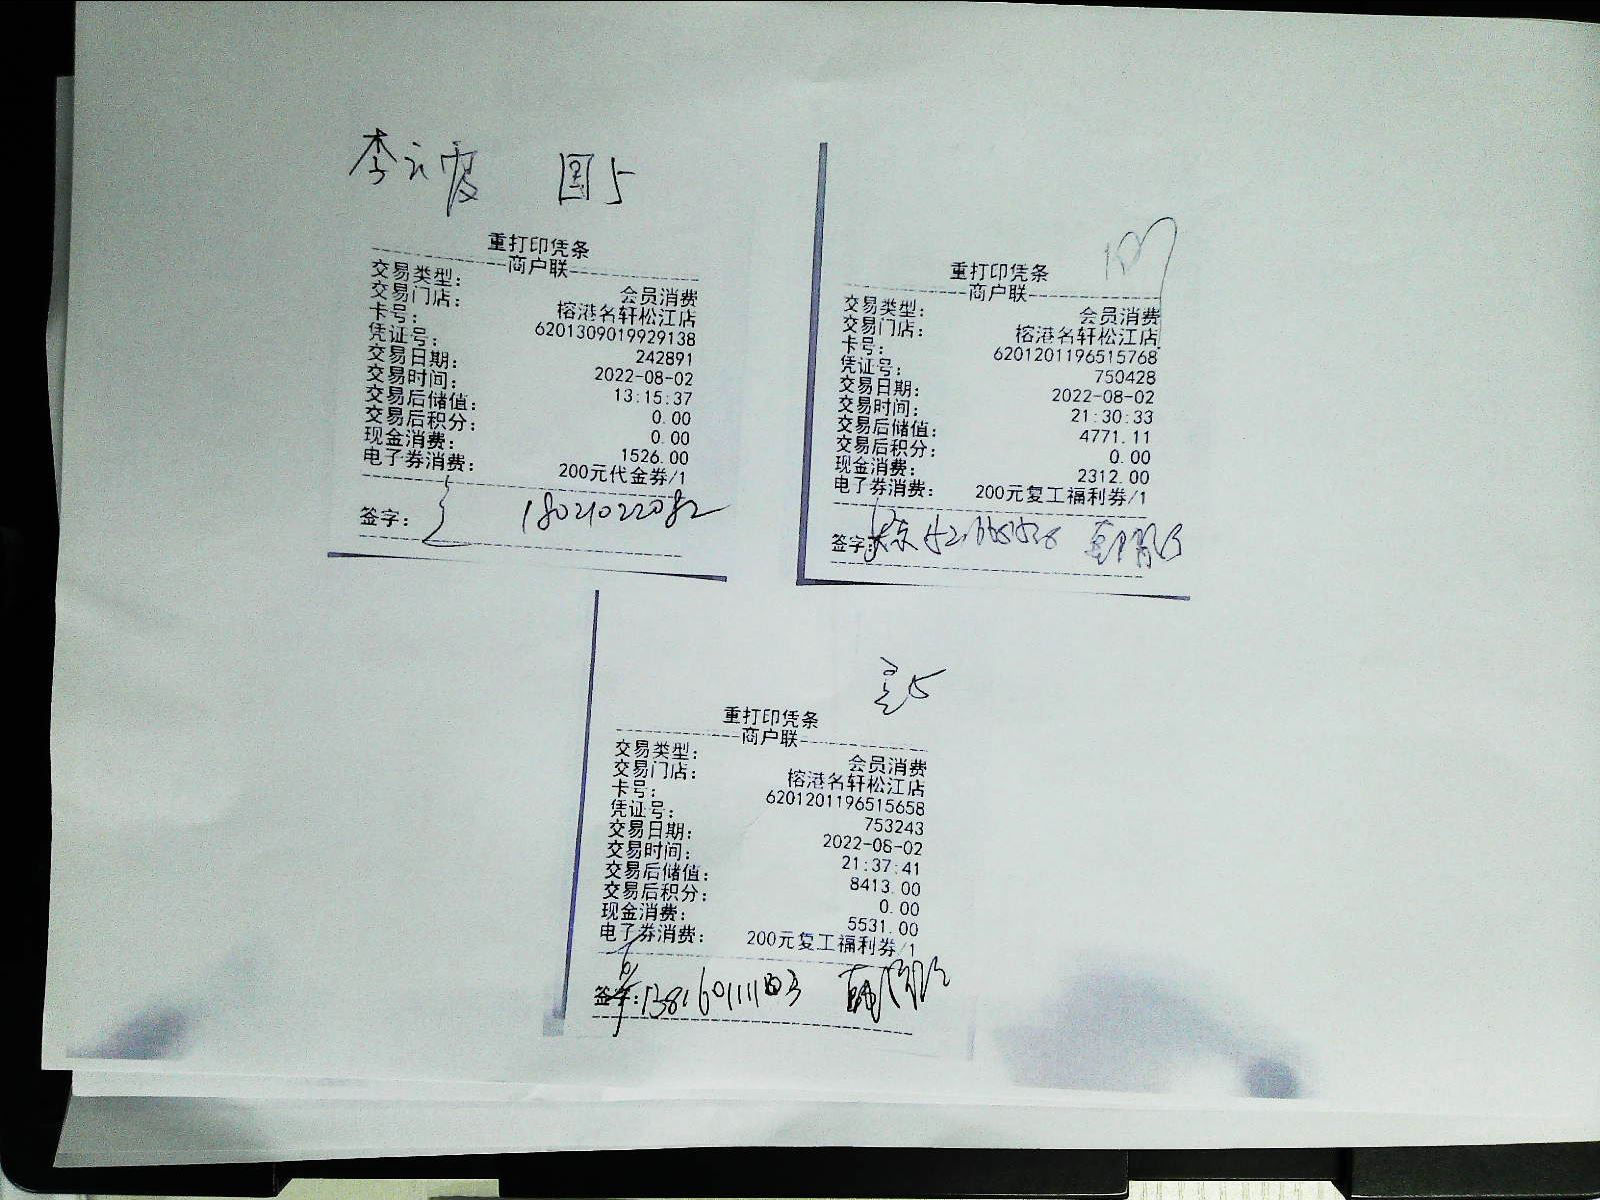 李云霞 国5
重打印凭条
商户联
交易类型： 会员消费
交易门店： 榕港名轩松江店
卡号： 6201309019929138
凭证号： 242891
交易日期： 2022-08-02
交易时间： 13:15:37
交易后储值： 0.00
交易后积分： 0.00
现金消费： 1526.00
电子券消费： 200元代金券/1
签字： 18021022082
重打印凭条
商户联
交易类型： 会员消费
交易门店： 榕港名轩松江店
卡号： 6201201196515768
凭证号： 750428
交易日期： 2022-08-02
交易时间： 21:30:33
交易后储值： 4771.11
交易后积分： 0.00
现金消费： 2312.00
电子券消费： 200元复工福利券/1
签字：
重打印凭条
商户联
交易类型： 会员消费
交易门店： 榕港名轩松江店
卡号： 6201201196515658
凭证号： 753243
交易日期： 2022-08-02
交易时间： 21:37:41
交易后储值： 8413.00
交易后积分： 0.00
现金消费： 5531.00
电子券消费： 200元复工福利券/1
签字：